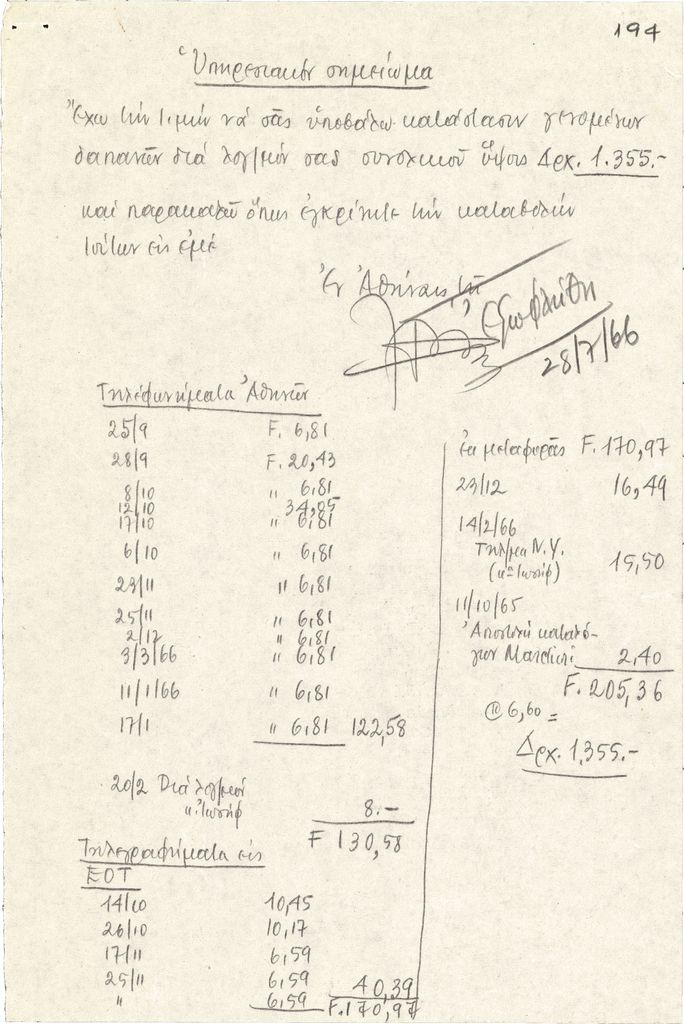 194
Ὑπηρεσιακόν σημείωμα
Ἔχω τήν τιμήν νά σᾶς ὑποβάλω κατάστασιν γενομένων
δαπανῶν διά λογ/μόν σας συνολικοῦ ὕψους Δρχ. 1.355.-
καί παρακαλῶ ὅπως ἐγκρίνητε τήν καταβολήν
τούτων εἰς ἐμέ
Ἐν Ἀθήναις τῇ
Ἐξωφλήθη
28/7/66
Τηλεφωνήματα Ἀθηνῶν
25/9 F. 6,81
28/9 F. 20,43
8/10 " 6,81
12/10 34,05
17/10 " 6,81
6/10 " 6,81
23/11 " 6,81
25/11 " 6,81
2/12 " 6,81
3/3/66 " 6,81
11/1/66 " 6,81
17/1 " 6,81 122,58
20/2 Διά λογ/μόν
κ. Ἰωσήφ 8.-
F 130,58
Τηλεγραφήματα εἰς
ΕΟΤ
14/10 10,45
26/10 10,17
17/11 6,59
25/11 6,59 40,39
" 6,59 F.170,97
ἐκ μεταφορᾶς F. 170,97
23/12 16,49
14/2/66
Τηλ/μα N.Y.
(κ. Ἰωσήφ) 15,50
11/10/65
Ἀποστολή καταλό-
γων 2,40
F. 205,36
@ 6,60 =
Δρχ. 1.355.-